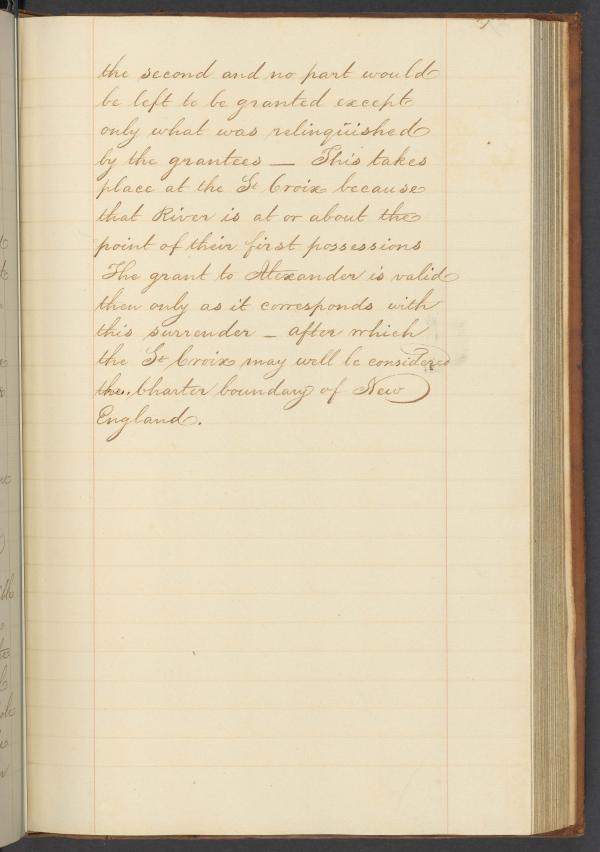 the second and no part would
be left to be granted except
only what was relinquished
by the grantees — This takes
place at the St Croix because
that River is at or about the
point of their first possessions
The grant to Alexander is valid
then only as it corresponds with
this surrender – after which
the St Croix may well be considered
the. Charter boundary of New
England.